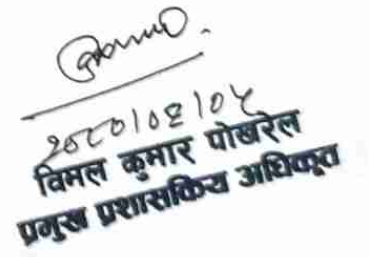 २०८०/०६/०५
विमल कुमार पोखरेल
प्रमुख प्रशासकिय अधिकृत